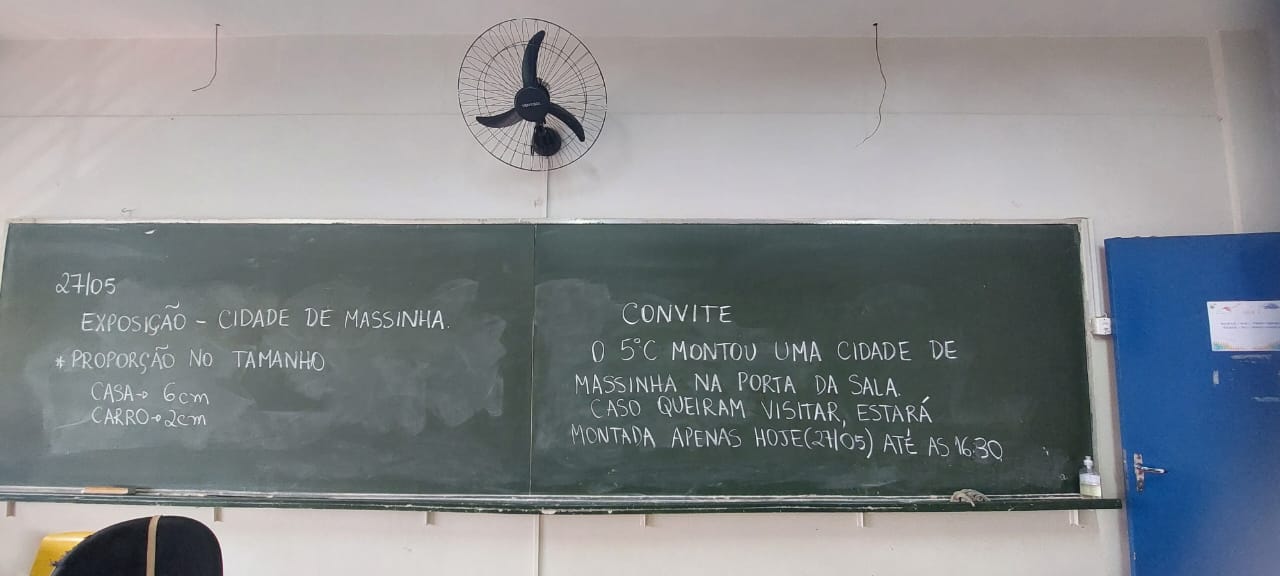 27/05
EXPOSIÇÃO - CIDADE DE MASSINHA.
* PROPORÇÃO NO TAMANHO
CASA→ 6cm
CARRO→2cm
CONVITE
O 5°C MONTOU UMA CIDADE DE
MASSINHA NA PORTA DA SALA.
CASO QUEIRAM VISITAR, ESTARÁ
MONTADA APENAS HOJE(27/05) ATÉ AS 16:30